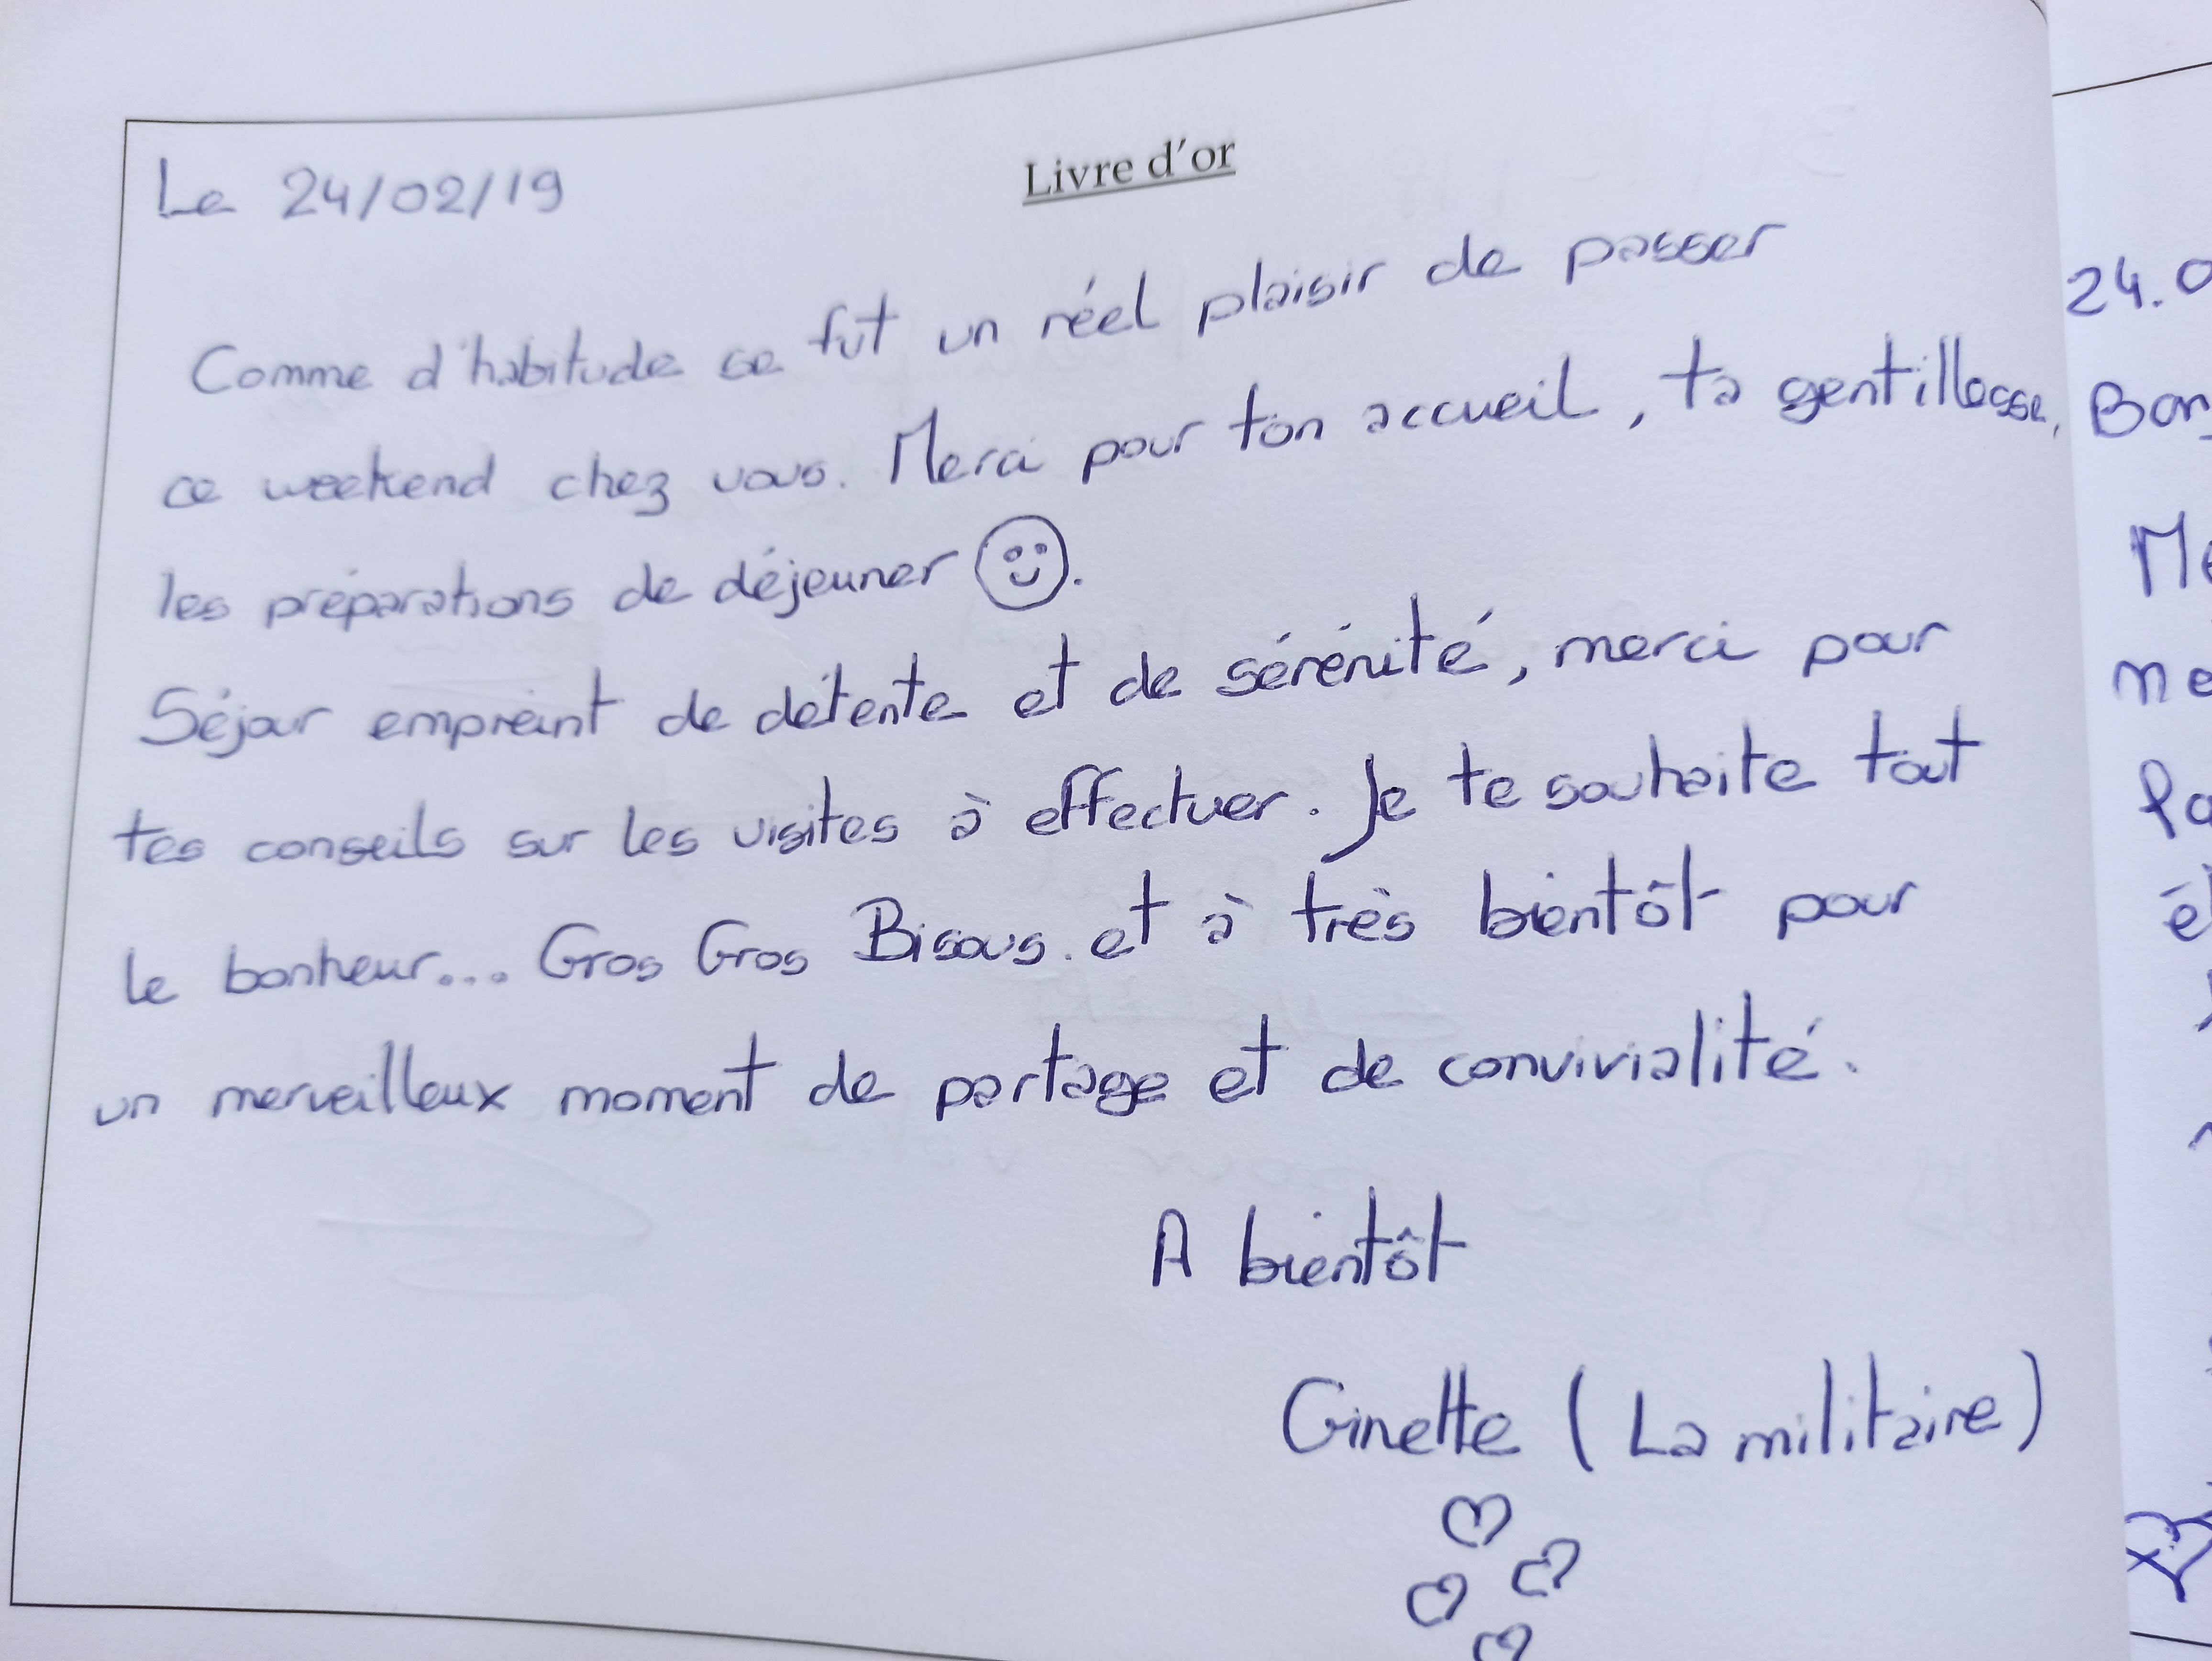 Livre d'or
Le 24/02/19
Comme d'habitude ce fut un réel plaisir de passer
ce weekend chez vous. Merci pour ton accueil, ta gentillesse,
les préparations de déjeuner ☺.
Séjour empreint de détente et de sérénité, merci pour
tes conseils sur les visites à effectuer. Je te souhaite tout
le bonheur... Gros Gros Bisous. et à très bientôt pour
un merveilleux moment de partage et de convivialité.
A bientôt
Ginette (La militaire)